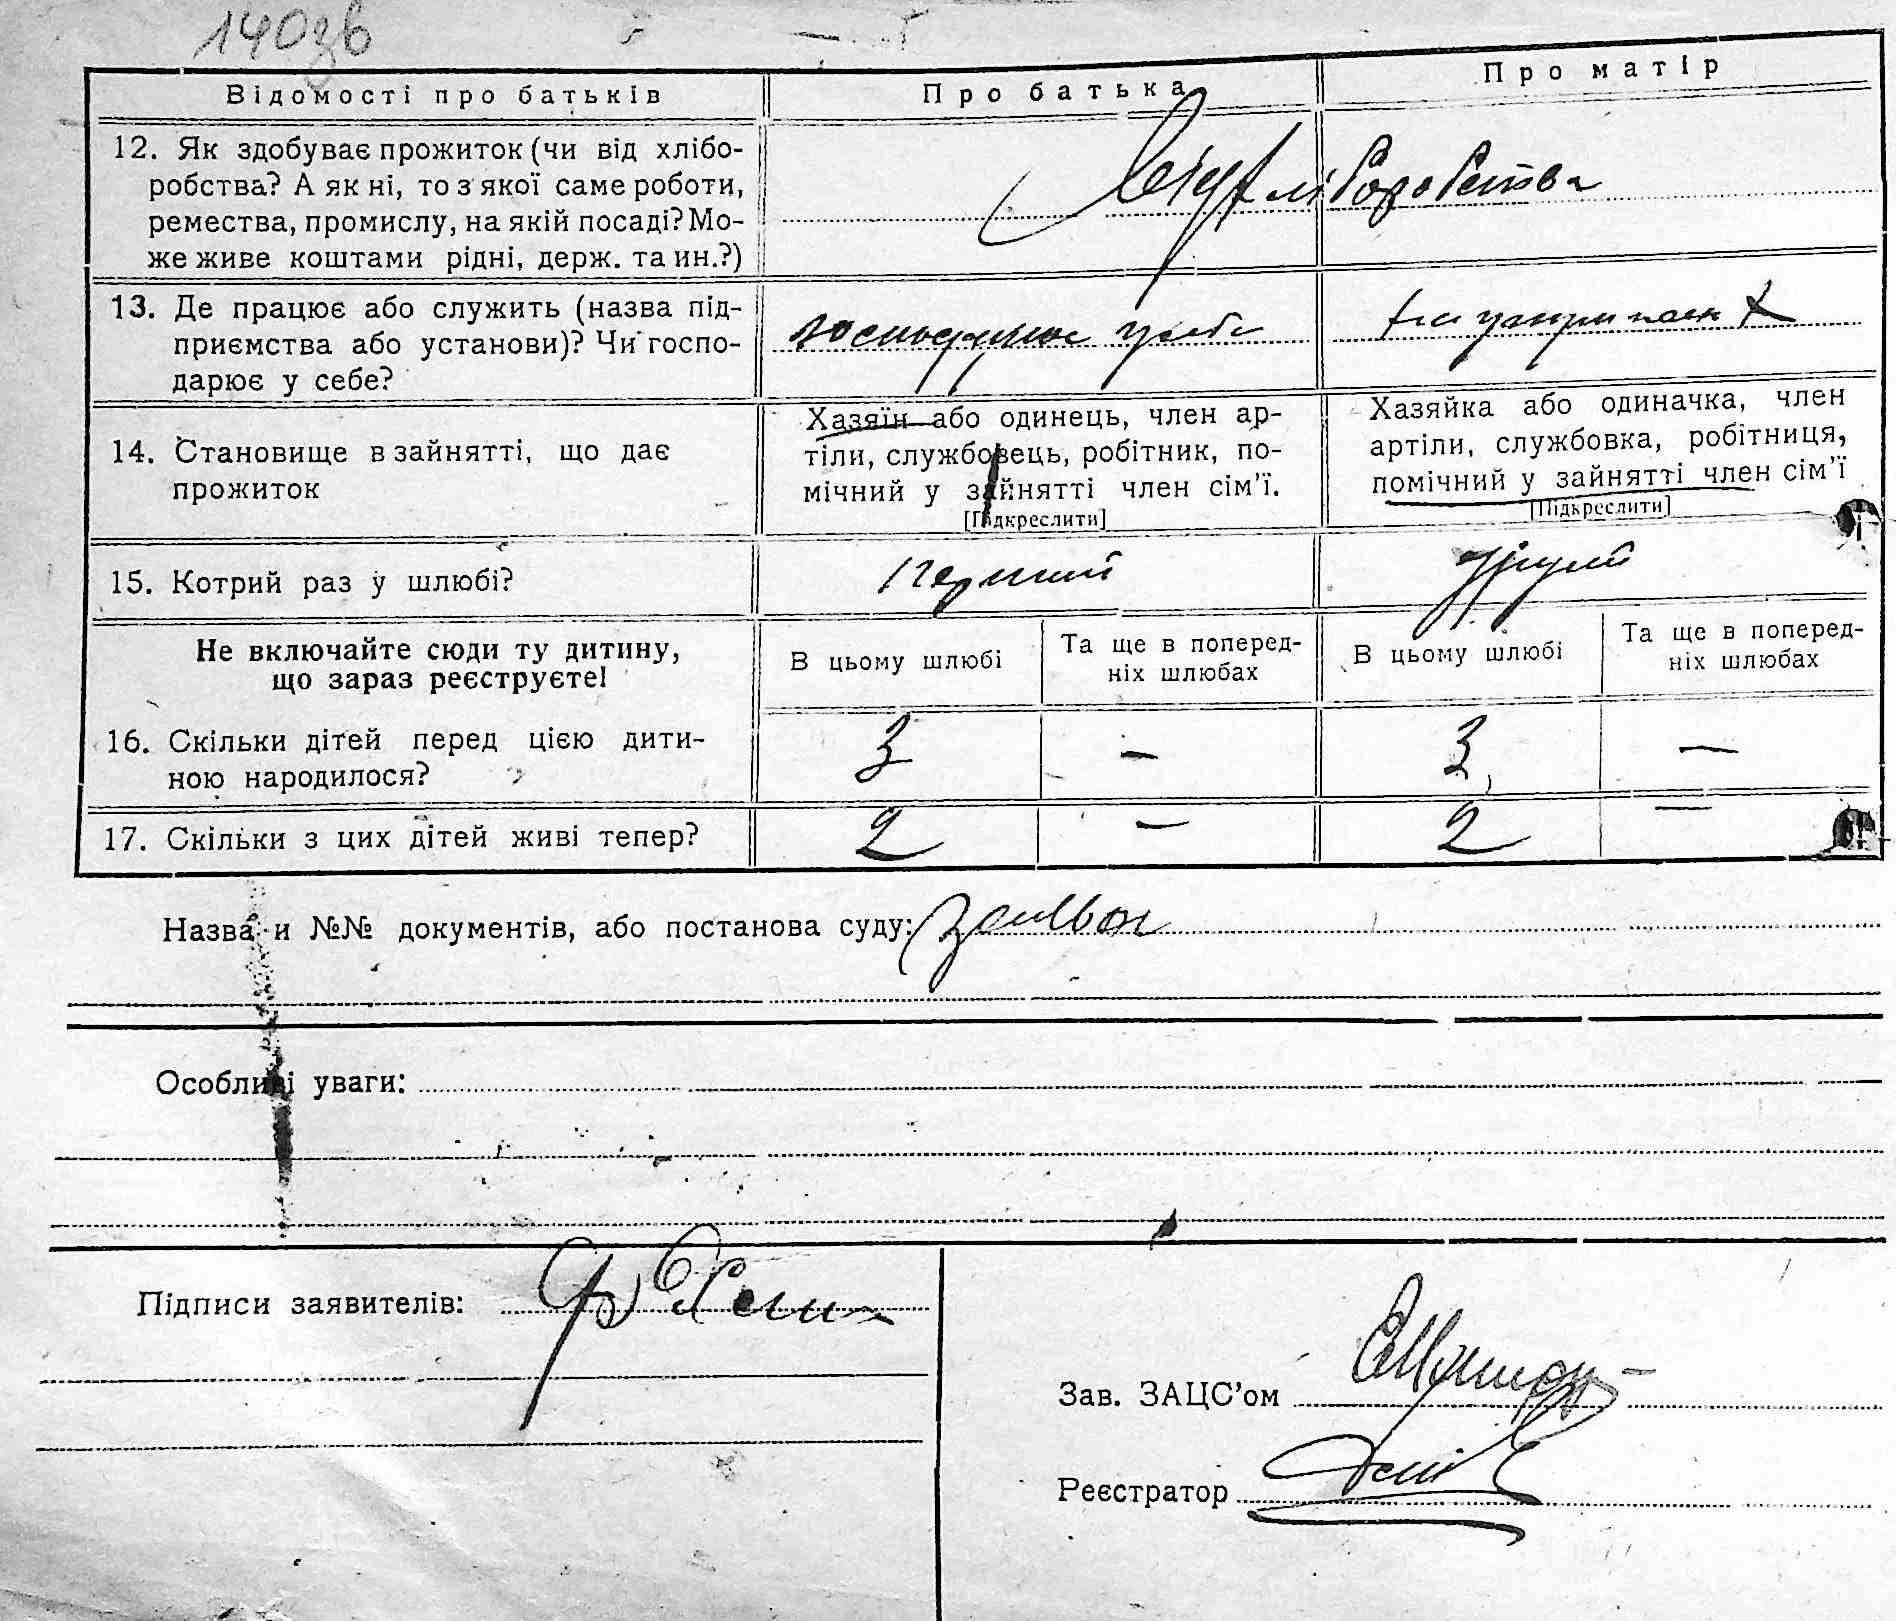 140зв
Відомості про батьків
Про батька
Про матір
12. Як здобуває прожиток (чи від хлібо-
робства? А як ні, то з якої саме роботи,
ремества, промислу, на якій посаді? Мо-
же живе коштами рідні, держ. та ин.?)
від хліборобства
13. Де працює або служить (назва під-
приємства або установи)? Чи госпо-
дарює у себе?
14. Становище в зайнятті, що дає
прожиток
Хазяїн або одинець, член ар-
тіли, службовець, робітник, по-
мічний у зайнятті член сім'ї.
[Підкреслити]
Хазяйка або одиначка, член
артіли, службовка, робітниця,
помічний у зайнятті член сім'ї
[Підкреслити]
15. Котрий раз у шлюбі?
первий
другий
Не включайте сюди ту дитину,
що зараз реєструєте!
В цьому шлюбі
Та ще в поперед-
ніх шлюбах
В цьому шлюбі
Та ще в поперед-
ніх шлюбах
16. Скільки дітей перед цією дити-
ною народилося?
3 — 3 —
17. Скільки з цих дітей живі тепер?
2 — 2 —
Назва и №№ документів, або постанова суду:
Особливі уваги:
Підписи заявителів:
Зав. ЗАЦС'ом
Реєстратор